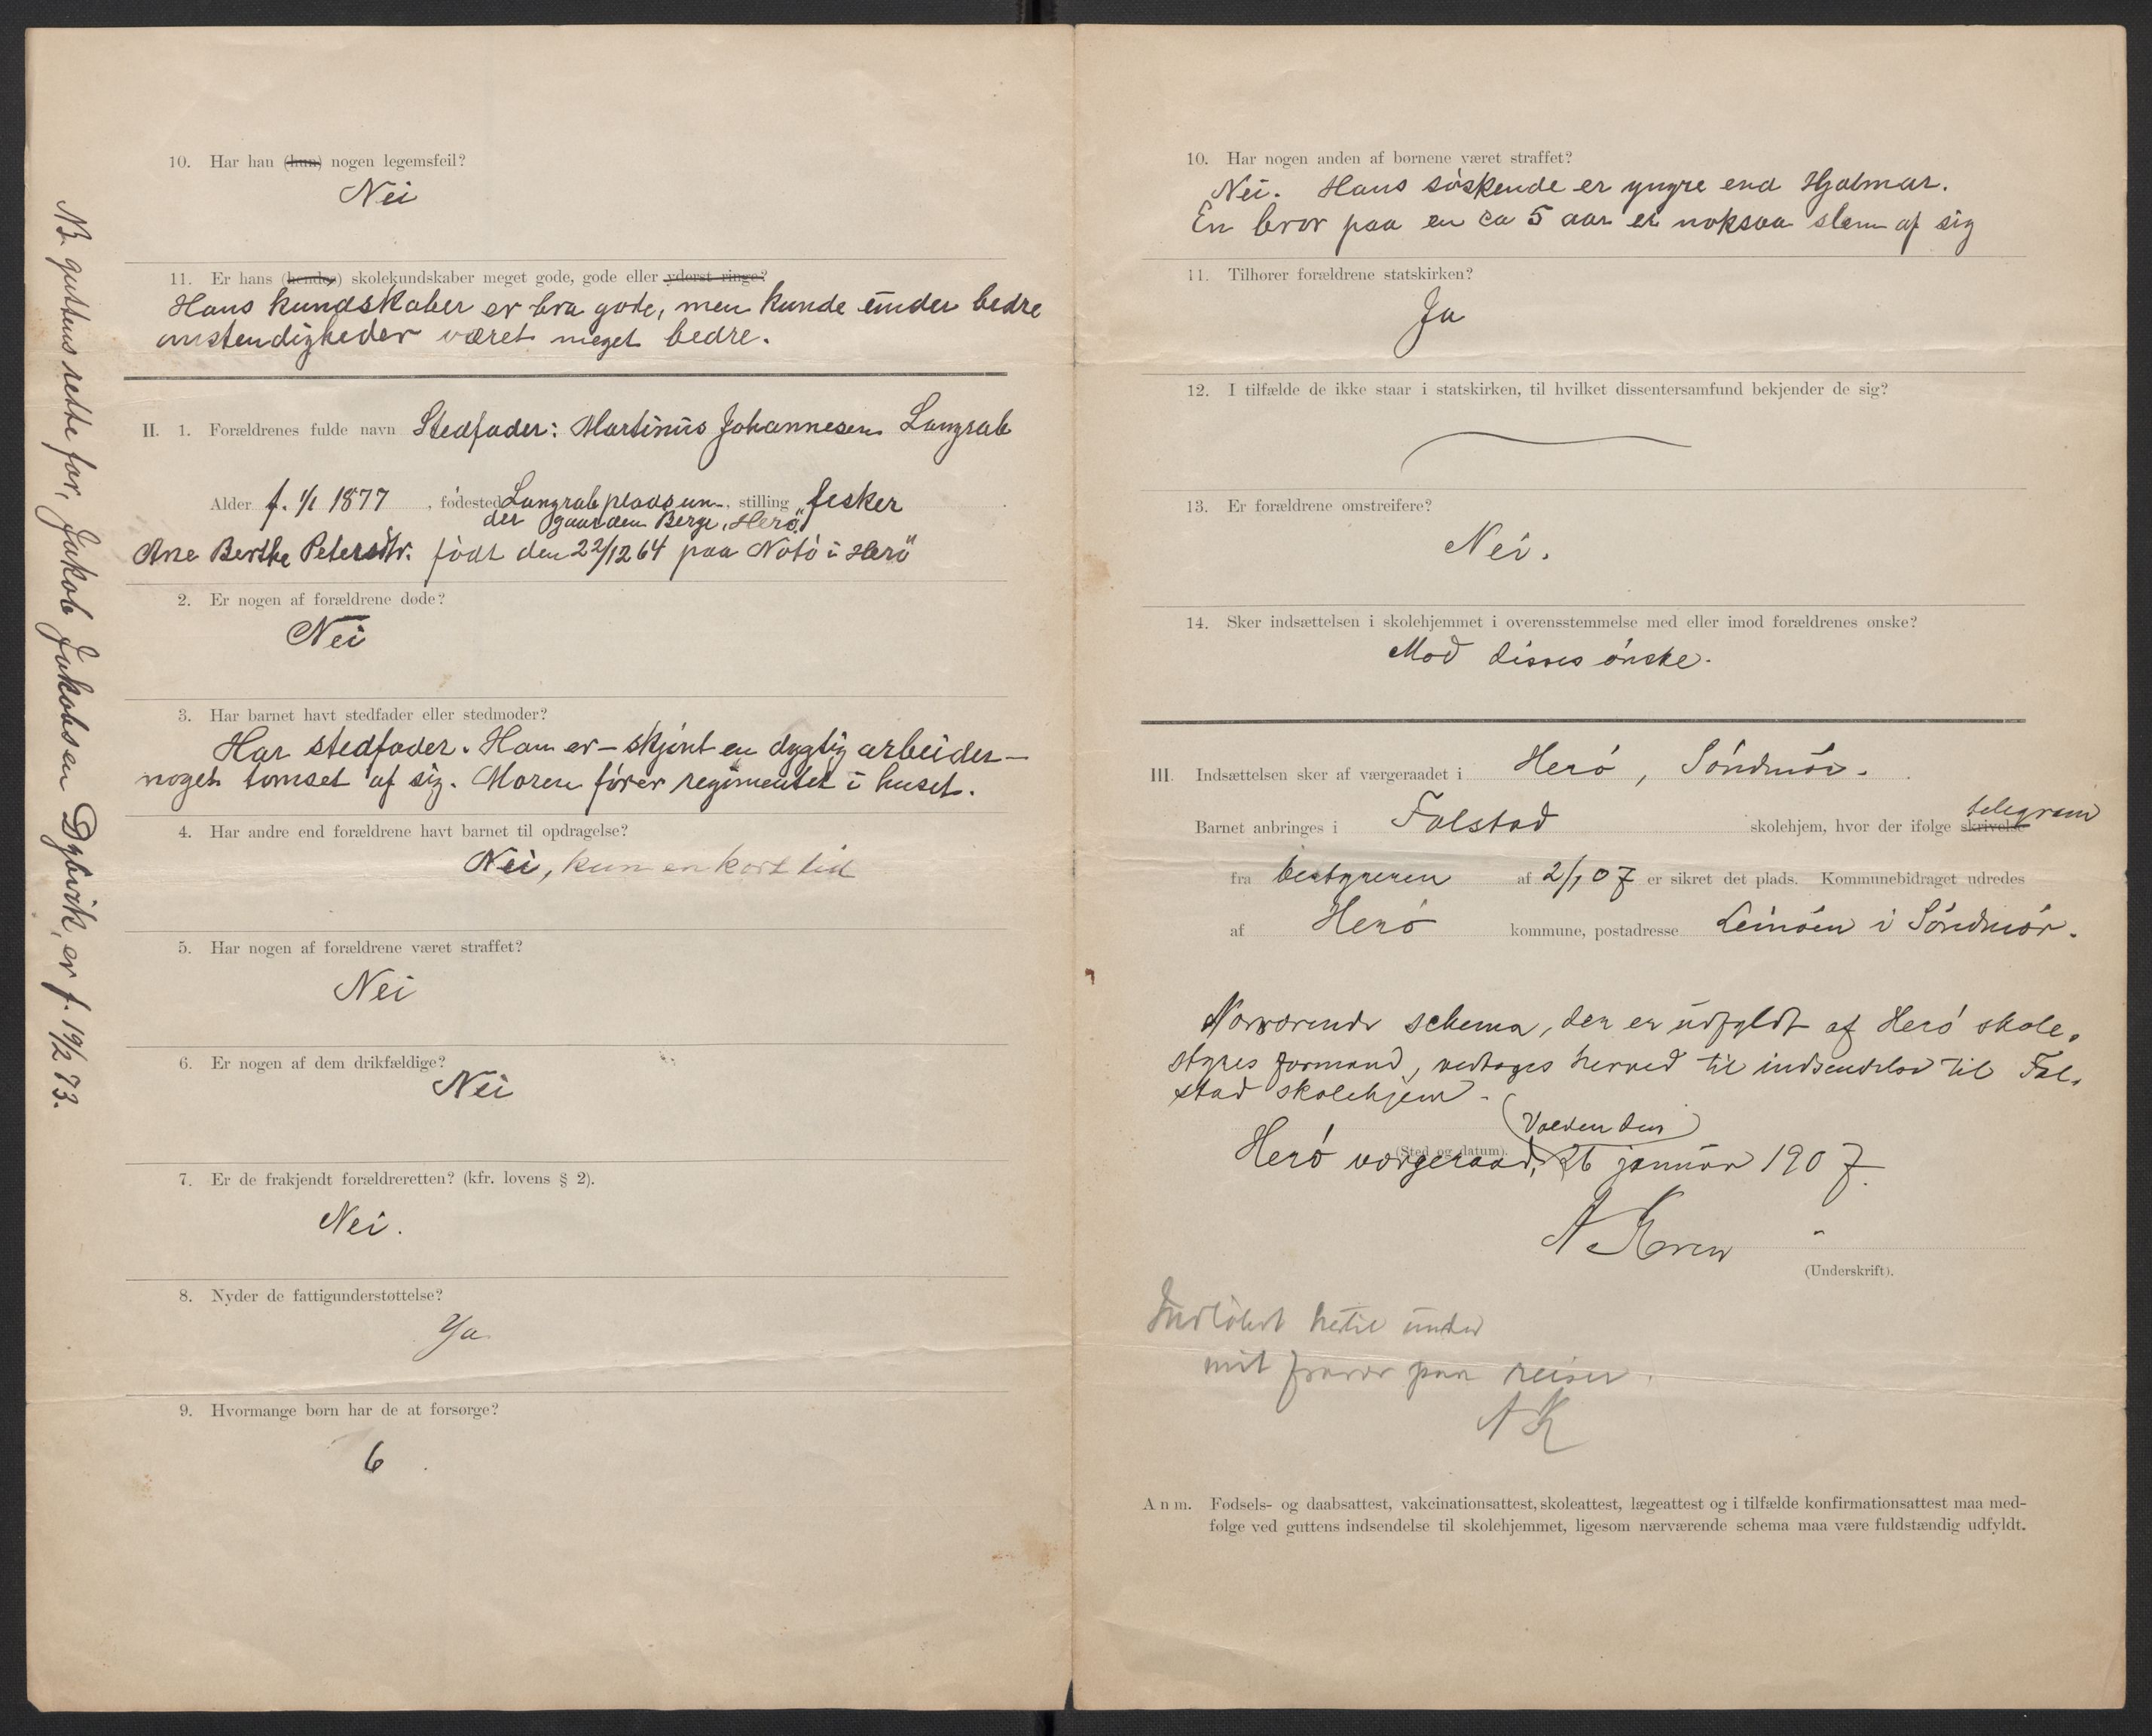 NB. guttens rette far, Jakob Jakobsen Dybvik, er f. 19/2 73.
10. Har han (hun) nogen legemsfeil?
Nei
11. Er hans (hendes) skolekundskaber meget gode, gode eller yderst ringe?
Hans kundskaber er bra gode, men kunde under bedre
omstendigheder været meget bedre.
II. 1. Forældrenes fulde navn Stedfader: Martinus Johannesen Langrab
Alder f. 1/1 1877, fødested Langrab plads un-, stilling fisker
der gaarden Berge, Herö.
Ane Berthe Petersdtr. födt den 22/12 64 paa Notö i Herö
2. Er nogen af forældrene døde?
Nei
3. Har barnet havt stedfader eller stedmoder?
Har stedfader. Han er – skjönt en dygtig arbeider –
noget tomset af sig. Moren förer regimentet i huset.
4. Har andre end forældrene havt barnet til opdragelse?
Nei, kun en kort tid
5. Har nogen af forældrene været straffet?
Nei
6. Er nogen af dem drikfældige?
Nei
7. Er de frakjendt forældreretten? (kfr. lovens § 2).
Nei.
8. Nyder de fattigunderstøttelse?
Ja
9. Hvormange børn har de at forsørge?
6
10. Har nogen anden af børnene været straffet?
Nei. Hans söskende er yngre end Hjalmar.
En bror paa en ca 5 aar er noksaa slem af sig
11. Tilhører forældrene statskirken?
Ja
12. I tilfælde de ikke staar i statskirken, til hvilket dissentersamfund bekjender de sig?
13. Er forældrene omstreifere?
Nei.
14. Sker indsættelsen i skolehjemmet i overensstemmelse med eller imod forældrenes ønske?
Mod disses önske.
III. Indsættelsen sker af værgeraadet i Herö, Söndmör.
telegram
Barnet anbringes i Falstad skolehjem, hvor der ifølge skrivelse
fra bestyreren af 2/1 07 er sikret det plads. Kommunebidraget udredes
af Herö kommune, postadresse Leinöen i Söndmör.
Nærværende schema, der er udfyldt af Herö skole-
styres formand, vedtages herved til indsendelse til Fal-
stad skolehjem.
Volden den
(Sted og datum).
Herö værgeraad, 26 januar 1907.
A Koren
(Underskrift).
Indløbet hertil under
mit fravær paa reiser.
AK
Anm. Fødsels- og daabsattest, vakcinationsattest, skoleattest, lægeattest og i tilfælde konfirmationsattest maa med-
følge ved guttens indsendelse til skolehjemmet, ligesom nærværende schema maa være fuldstændig udfyldt.